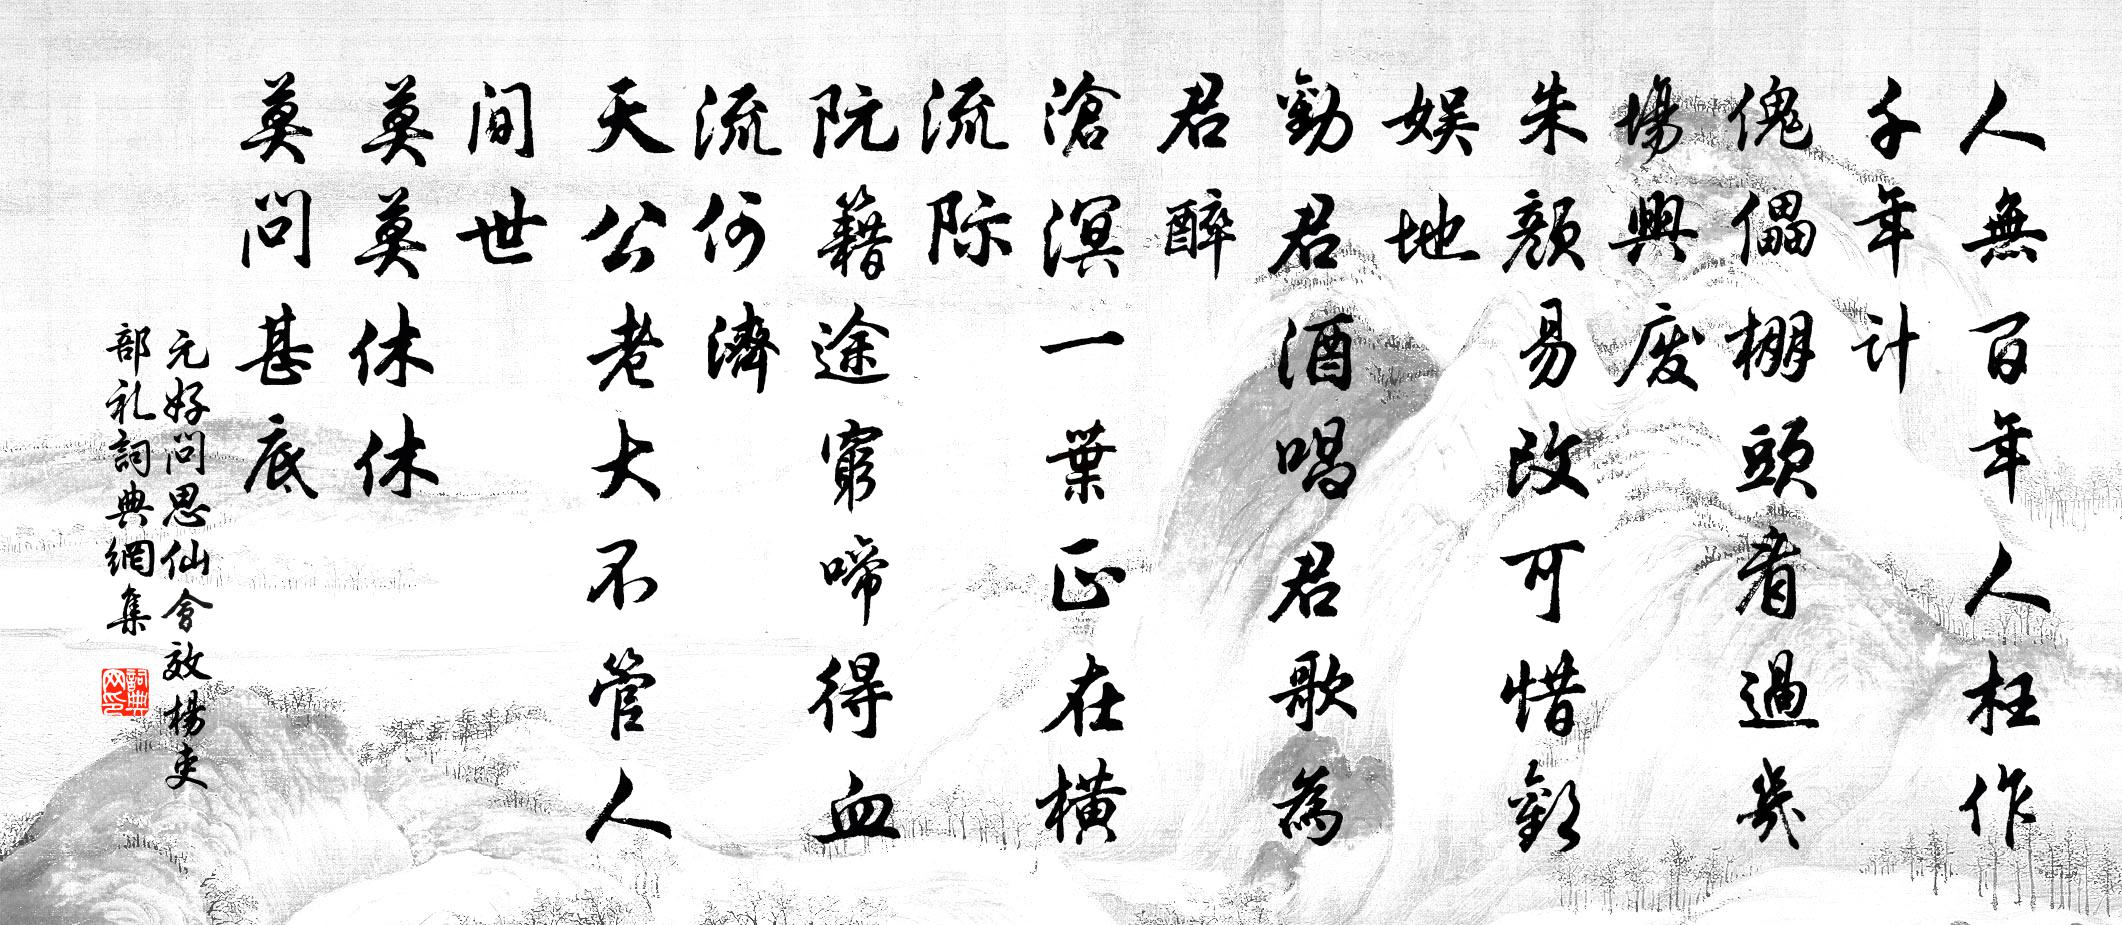 人無百年人枉作
千年計
傀儡棚頭看過幾
場興废
朱顏易改可惜歡
娛地
勸君酒唱君歌為
君醉
滄溟一葉正在橫
流际
阮籍途窮啼得血
流何濟
天公老大不管人
间世
莫莫休休
莫问甚底
元好问思仙會效楊吏
部礼詞典網集
詞典网印